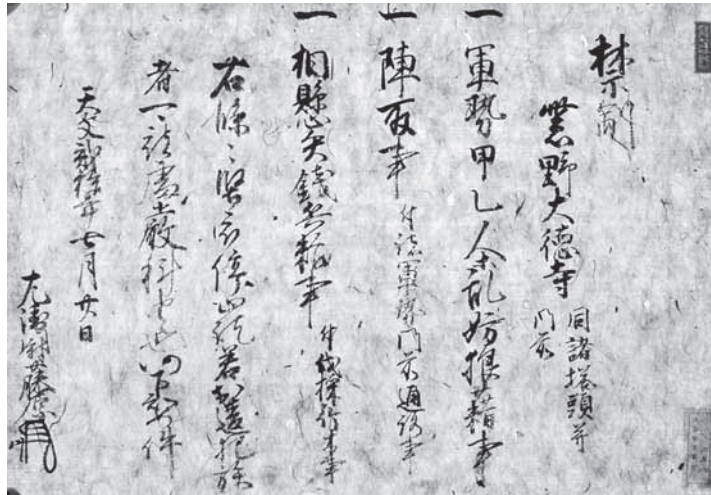 禁制
紫野大徳寺 同諸塔頭并
門前
一 軍勢甲乙人等乱妨狼藉事
一 陣取事 付諸軍勢門前通路事
一 相懸矢銭兵粮事 付伐採竹木事
右條々堅令停止訖若有違犯族
者可被處嚴科者也仍下知如件
天文 年七月廿日
左衛門 藤原